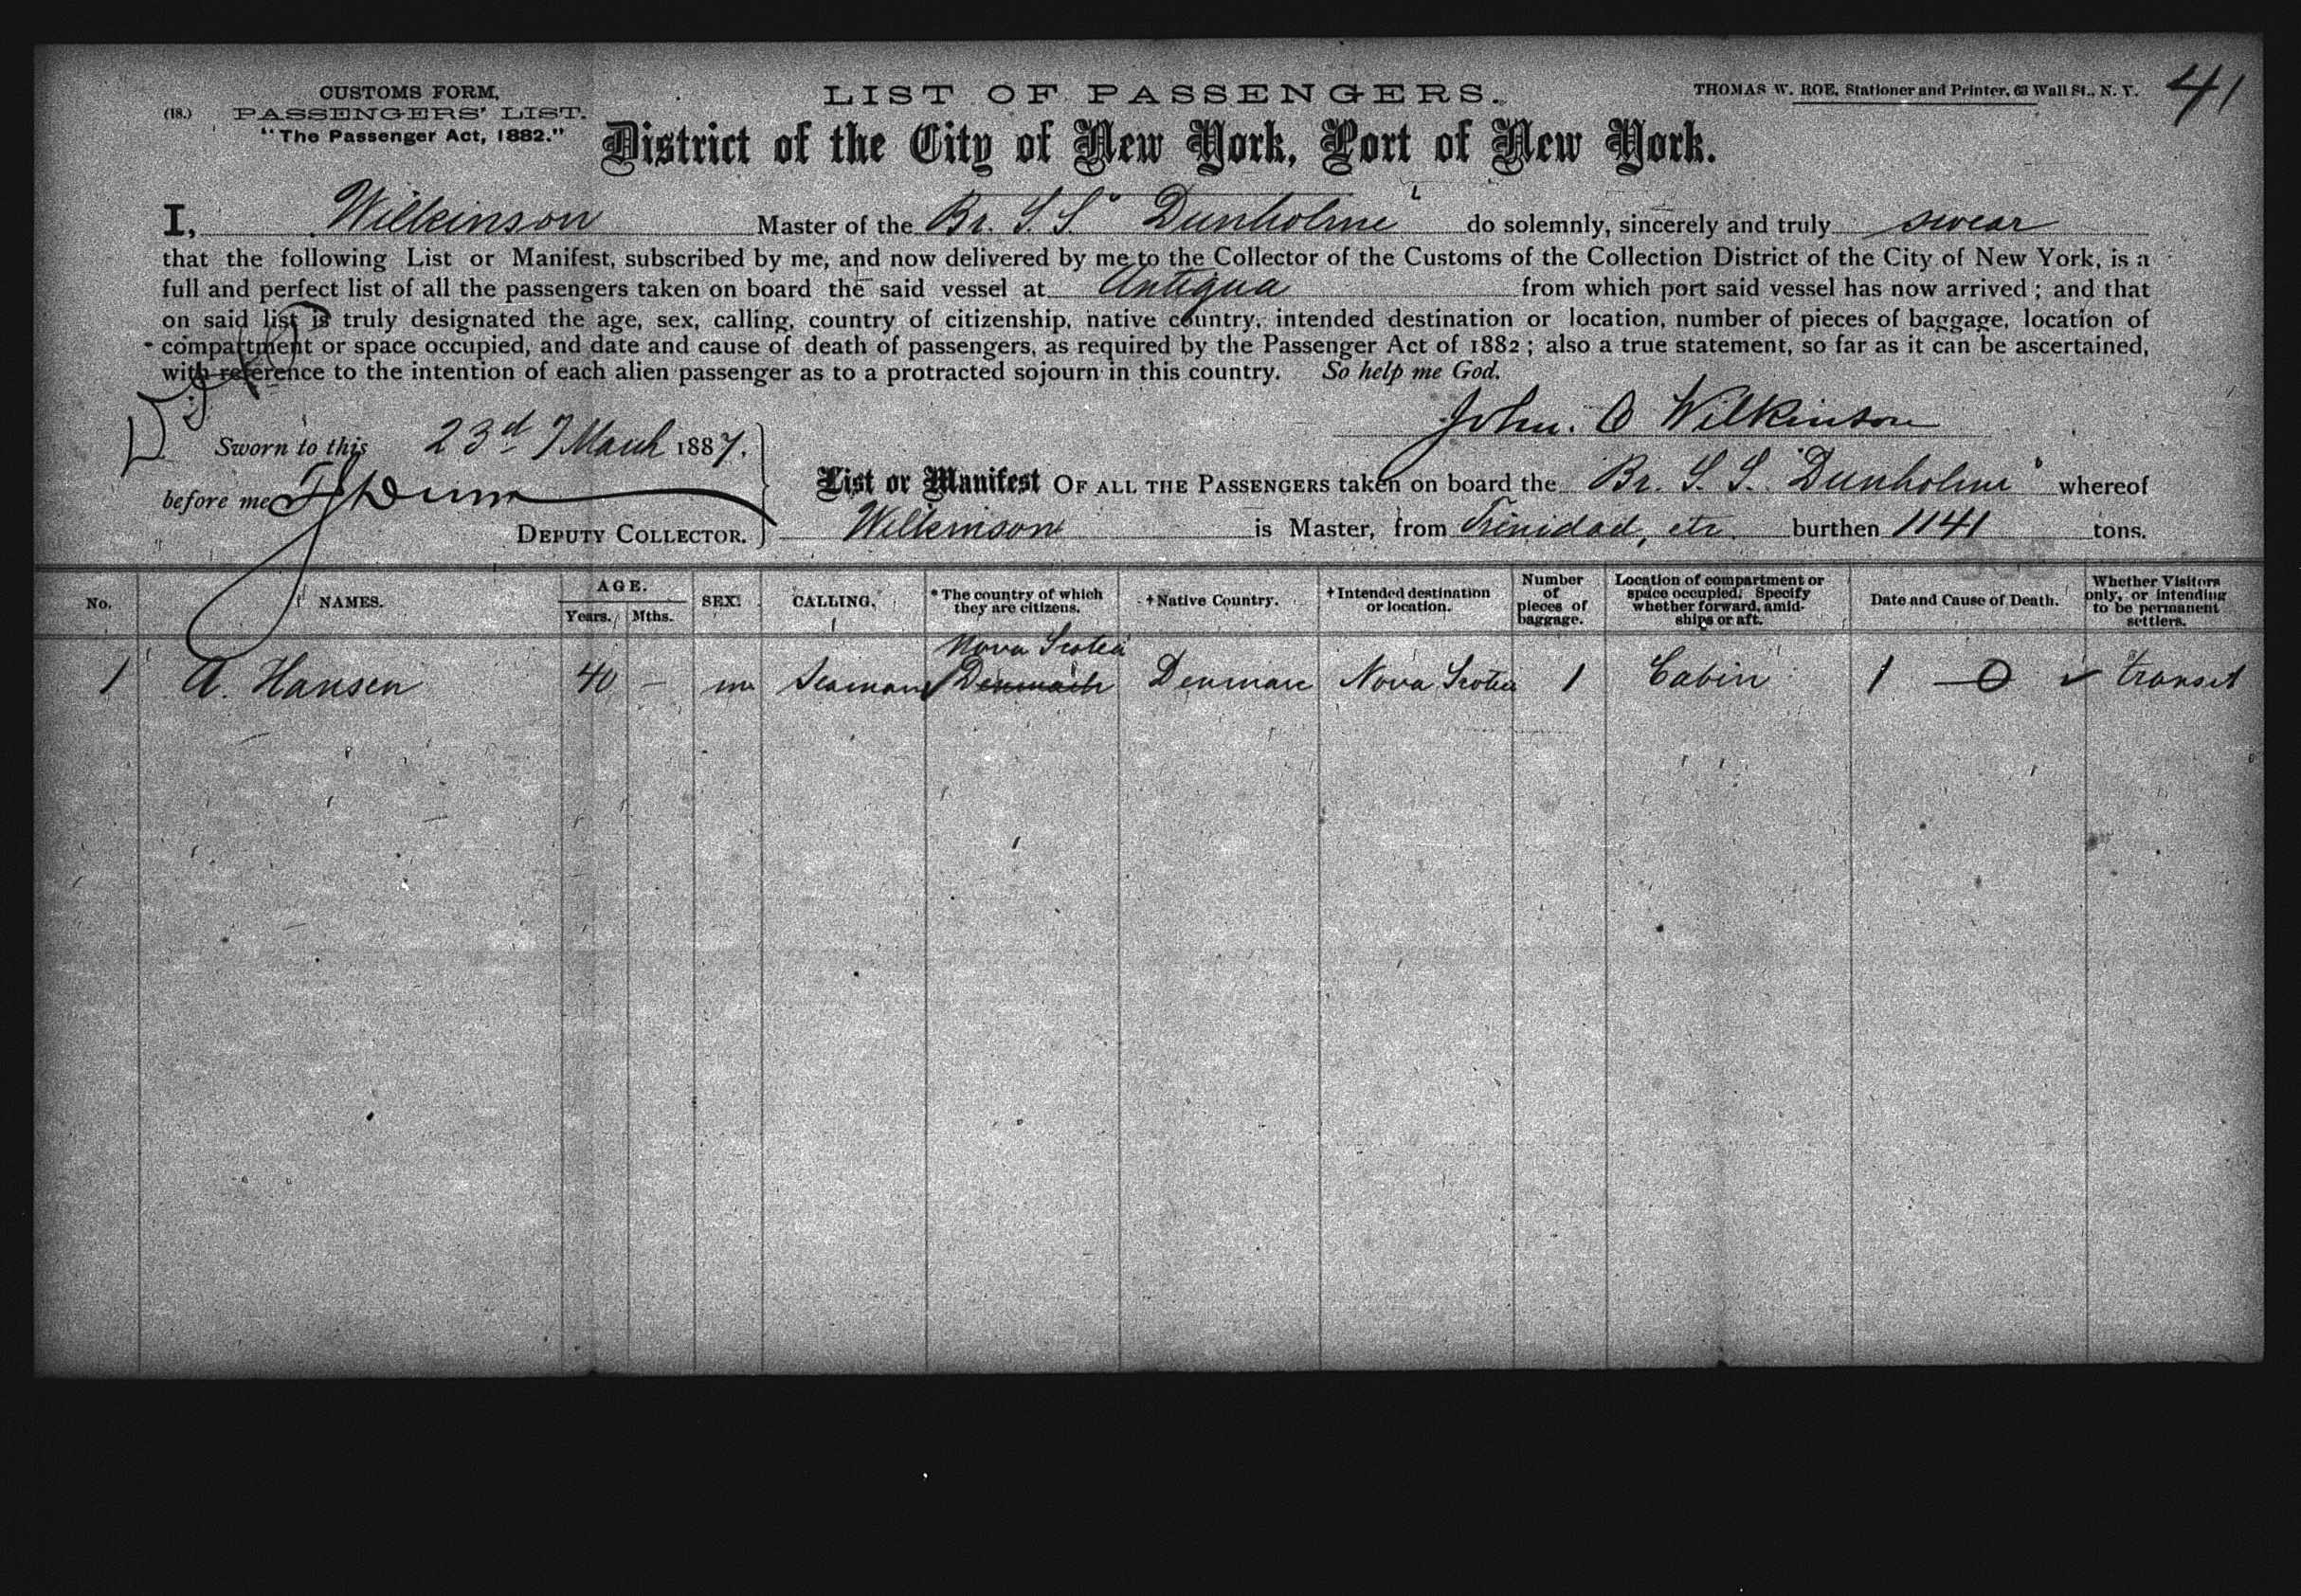 41
CUSTOMS FORM,
(18.) PASSENGERS' LIST.
"The Passenger Act, 1882."
LIST OF PASSENGERS.
THOMAS W. ROE, Stationer and Printer, 63 Wall St., N. Y.
District of the City of New York, Port of New York.
I, Wilkinson Master of the Br. S.S "Dunholme" do solemnly, sincerely and truly swear
that the following List or Manifest, subscribed by me, and now delivered by me to the Collector of the Customs of the Collection District of the City of New York, is a
full and perfect list of all the passengers taken on board the said vessel at Antigua from which port said vessel has now arrived; and that
on said list is truly designated the age, sex, calling, country of citizenship, native country, intended destination or location, number of pieces of baggage, location of
compartment or space occupied, and date and cause of death of passengers, as required by the Passenger Act of 1882; also a true statement, so far as it can be ascertained,
with reference to the intention of each alien passenger as to a protracted sojourn in this country. So help me God.
John. O Wilkinson
Sworn to this 23rd March 1887.
before me Dunn
DEPUTY COLLECTOR.
List or Manifest OF ALL THE PASSENGERS taken on board the Br. S. S. "Dunholme" whereof
Wilkinson is Master, from Trinidad, etc. burthen 1141 tons.
No. NAMES. AGE. Years. Mths. SEX. CALLING. *The country of which they are citizens. +Native Country. +Intended destination or location. Number of pieces of baggage. Location of compartment or space occupied. Specify whether forward, amidships or aft. Date and Cause of Death. Whether Visitors only, or intending to be permanent settlers.
Nova Scotia
1 A. Hansen 40 — m Seaman Denmark Denmark Nova Scotia 1 Cabin 1 — 0 ✓ transit